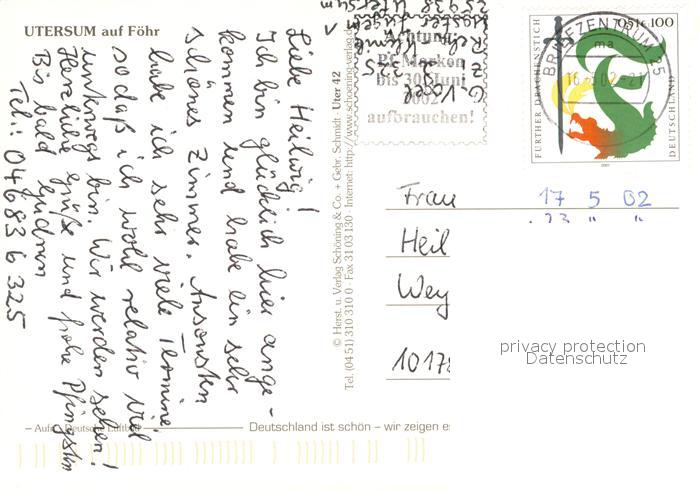 UTERSUM auf Föhr
Liebe Heilwig!
Ich bin glücklich hier ange-
kommen und habe ein sehr
schönes Zimmer. Ansonsten
habe ich sehr viele Termine
sodaß ich wohl relativ viel
unterwegs bin. Wir werden sehen!
Herzliche Grüße und frohe Pfingsten
Bis bald Gudrun
Tel.: 04683 6 325
© Herst. u. Verlag Schöning & Co. + Gebr. Schmidt · Uter 42
Tel. (04 51) 310 310 0 · Fax 31 03 130 · Internet: http://www.schoening-verlag.de
Achtung!
Pf-Marken
bis 30. Juni
2002
aufbrauchen!
G. Vogel
25938 Utersum
BRIEFZENTRUM 25
ma
16.-5.02-21
0,51 € 100
FURTHER DRACHENSTICH
DEUTSCHLAND
2001
Frau
Heil
Wey
10178
17 5 02
. 23 " "
privacy protection
Datenschutz
– Aufn. Deutsche Luftbild
Deutschland ist schön – wir zeigen es